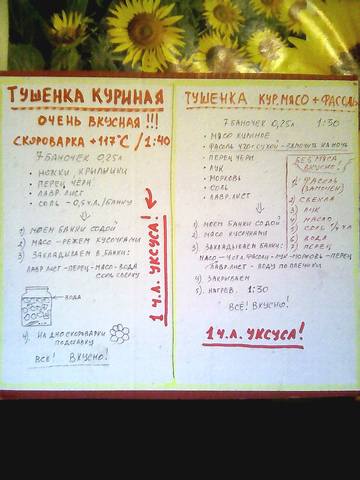 ТУШЕНКА КУРИНАЯ
ОЧЕНЬ ВКУСНАЯ !!!
СКОРОВАРКА +117°C /1:40
7 БАНОЧЕК 0,25Л
• НОЖКИ, КРЫЛЫШКИ
• ПЕРЕЦ ЧЁРН.
• ЛАВР. ЛИСТ
• СОЛЬ - 0,5 Ч.Л./БАНКУ
1) МОЕМ БАНКИ СОДОЙ
2) МЯСО - РЕЖЕМ КУСОЧКАМИ
3) ЗАКЛАДЫВАЕМ В БАНКИ:
ЛАВР. ЛИСТ - ПЕРЕЦ - МЯСО - ВОДА
СОЛЬ СВЕРХУ
ВОДА
4) НА ДНО СКОРОВАРКИ
ПОДСТАВКУ
ВСЁ! ВКУСНО!
1 Ч.Л. УКСУСА!
ТУШЕНКА КУР.МЯСО + ФАСОЛЬ
7 БАНОЧЕК 0,25Л 1:30
• МЯСО КУРИНОЕ
• ФАСОЛЬ СУХОЙ - ЗАМОЧИТЬ НА НОЧЬ
• ПЕРЕЦ ЧЁРН
• ЛУК
• МОРКОВЬ
• СОЛЬ
• ЛАВР. ЛИСТ
БЕЗ МЯСА
ВКУСНО!
1) ФАСОЛЬ
(ЗАМОЧЕН)
2) СВЕКЛА
3) ЛУК
4) МАСЛО
5) СОЛЬ
6) ВОДА
7) ПЕРЕЦ
1) МОЕМ БАНКИ СОДОЙ
2) МЯСО КУСОЧКАМИ
3) ЗАКЛАДЫВАЕМ БАНКИ:
МЯСО - ФАСОЛЬ - ЛУК - МОРКОВЬ - ПЕРЕЦ
ЛАВР. ЛИСТ - ВОДУ ПО ПЛЕЧИКИ
4) ЗАКРЫВАЕМ
5) НАГРЕВ. 1:30
ВСЁ! ВКУСНО!
1 Ч.Л. УКСУСА!